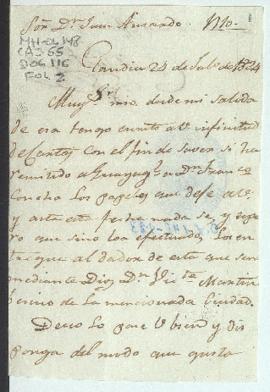 Sor. Dn. Juan
MH-OL 148
CAJ 65
DOC 116
FOL 2
24 de 1824
Muy Sr. mio desde mi salida
de esa tengo escrito a U. infinitud
de Cartas con el fin de saver si ha
remitido a Guayaqel. a Dn. Franco.
Concha los papeles que deje a U.
y asta esta fecha nada se, y espe
ro que sino los efectuado, los en
tregue al dador de esta que sera
mediante Dios, Dn. Martin
vecino de la mencionada Ciudad.
Deceo lo pase U. bien y dis
ponga del modo que gusta